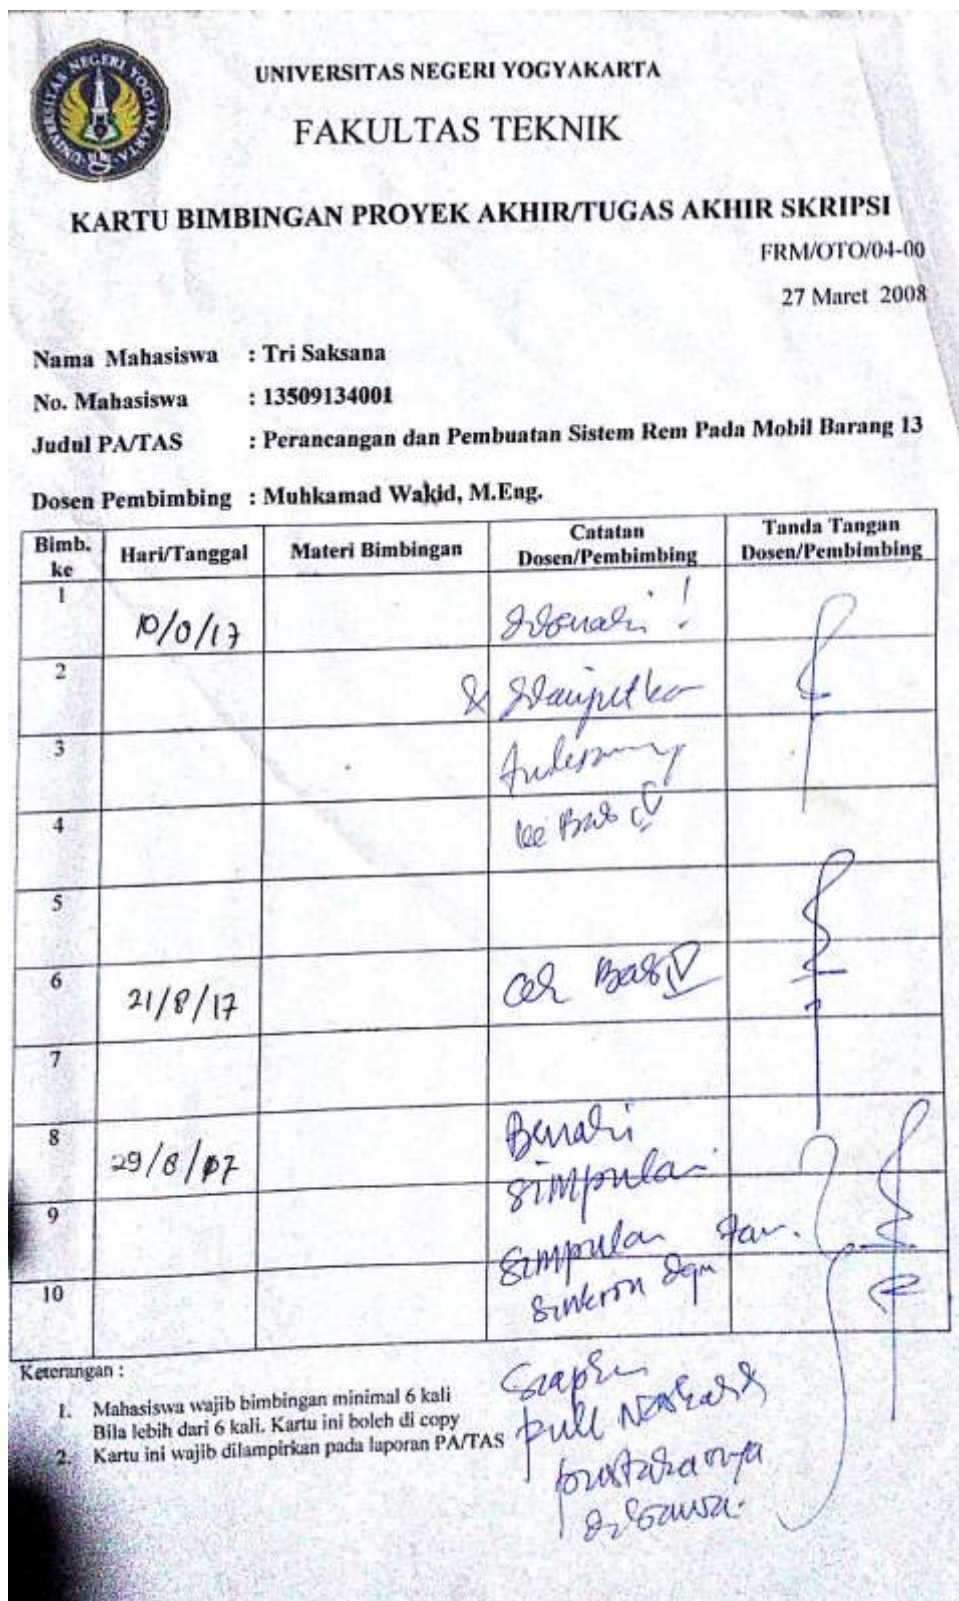 UNIVERSITAS NEGERI YOGYAKARTA
UNIVERSITAS NEGERI YOGYAKARTA
FAKULTAS TEKNIK
KARTU BIMBINGAN PROYEK AKHIR/TUGAS AKHIR SKRIPSI
FRM/OTO/04-00
27 Maret 2008
Nama Mahasiswa : Tri Saksana
No. Mahasiswa : 13509134001
Judul PA/TAS : Perancangan dan Pembuatan Sistem Rem Pada Mobil Barang 13
Dosen Pembimbing : Muhkamad Wakid, M.Eng.
Bimb. ke Hari/Tanggal Materi Bimbingan Catatan Dosen/Pembimbing Tanda Tangan Dosen/Pembimbing
1 !
2 &
3
4 ke Bab IV
5
6 21/8/17 cek Bab IV
7
8 29/8/17 Benahi
simpulan
9 simpulan
10 sinkron dgn
Keterangan :
1. Mahasiswa wajib bimbingan minimal 6 kali
Bila lebih dari 6 kali. Kartu ini boleh di copy
2. Kartu ini wajib dilampirkan pada laporan PA/TAS
Siapkan
full Naskah &
pustakanya
dibawa.